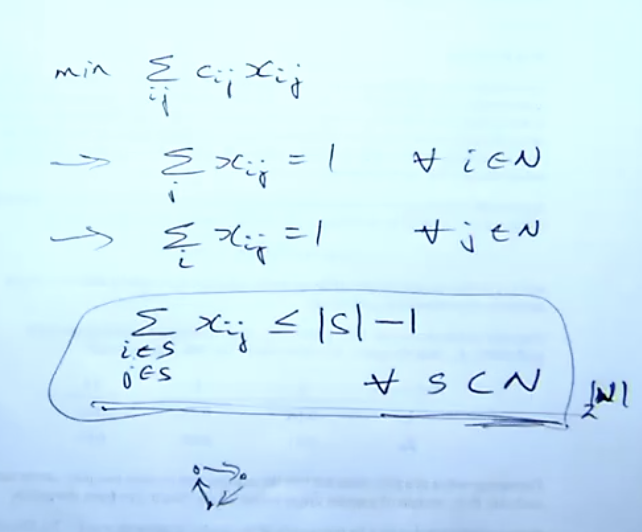 min Σ_{ij} c_{ij} x_{ij}
→ Σ_{j} x_{ij} = 1 ∀ i ∈ N
→ Σ_{i} x_{ij} = 1 ∀ j ∈ N
Σ_{i∈S, j∈S} x_{ij} ≤ |S| - 1
∀ S ⊂ N
2^{|N|}